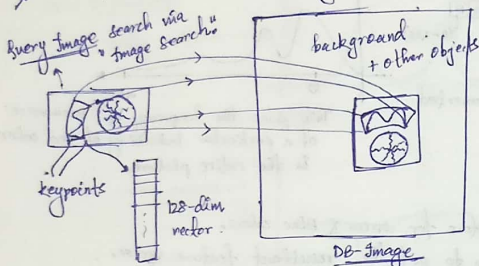 Query Image search via
"Image Search."
background
+ other objects
keypoints
128-dim
vector
DB-Image